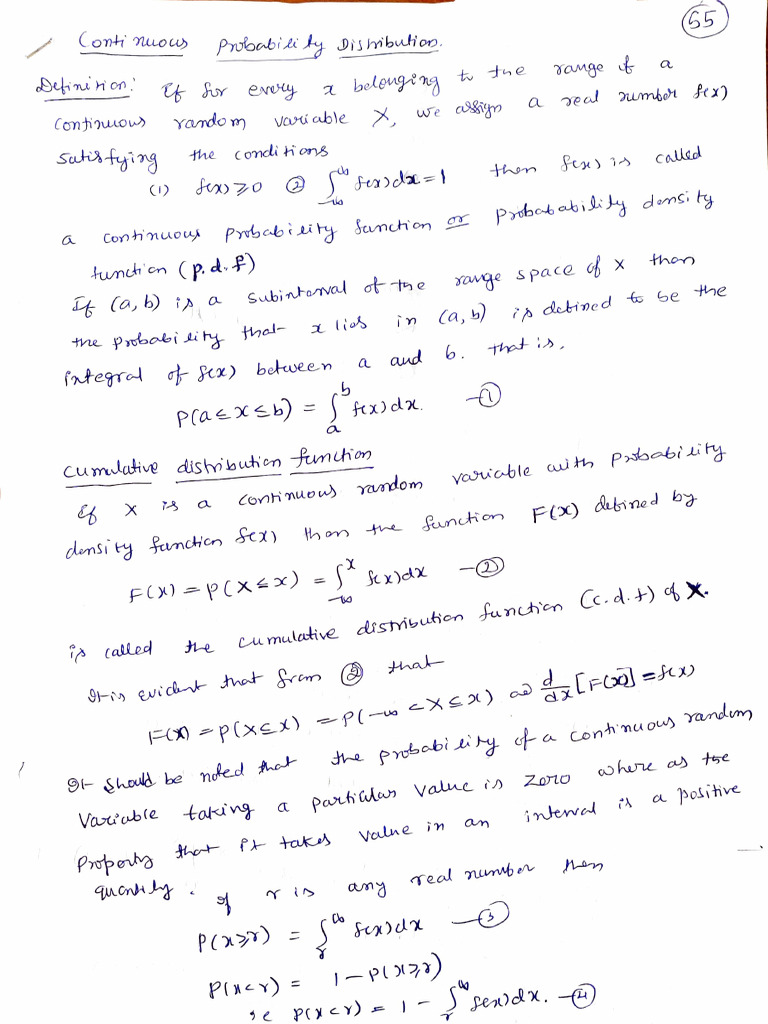 55
Continuous Probability Distribution.
Definition: If for every x belonging to the range of a
continuous random variable X, we assign a real number f(x)
satisfying the conditions
(1) f(x) ≥ 0 ② ∫_{-∞}^{∞} f(x) dx = 1 then f(x) is called
a continuous probability function or probabability density
function (p.d.f)
If (a, b) is a subinterval of the range space of X then
the probability that x lies in (a, b) is defined to be the
integral of f(x) between a and b. that is,
P(a ≤ x ≤ b) = ∫_a^b f(x) dx. —①
Cumulative distribution function
If X is a continuous random variable with probability
density function f(x) then the function F(x) defined by
F(x) = P(X ≤ x) = ∫_{-∞}^x f(x) dx —②
is called the cumulative distribution function (c.d.f) of X.
It is evident that from ② that
F(x) = P(X ≤ x) = P(-∞ < X ≤ x) as d/dx [F(x)] = f(x)
It should be noted that the probability of a continuous random
variable taking a particular value is zero where as the
property that it takes value in an interval is a positive
quantity. If r is any real number then
P(x ≥ r) = ∫_r^∞ f(x) dx —③
P(x < r) = 1 - P(x ≥ r)
ie P(x < r) = 1 - ∫_r^∞ f(x) dx. —④